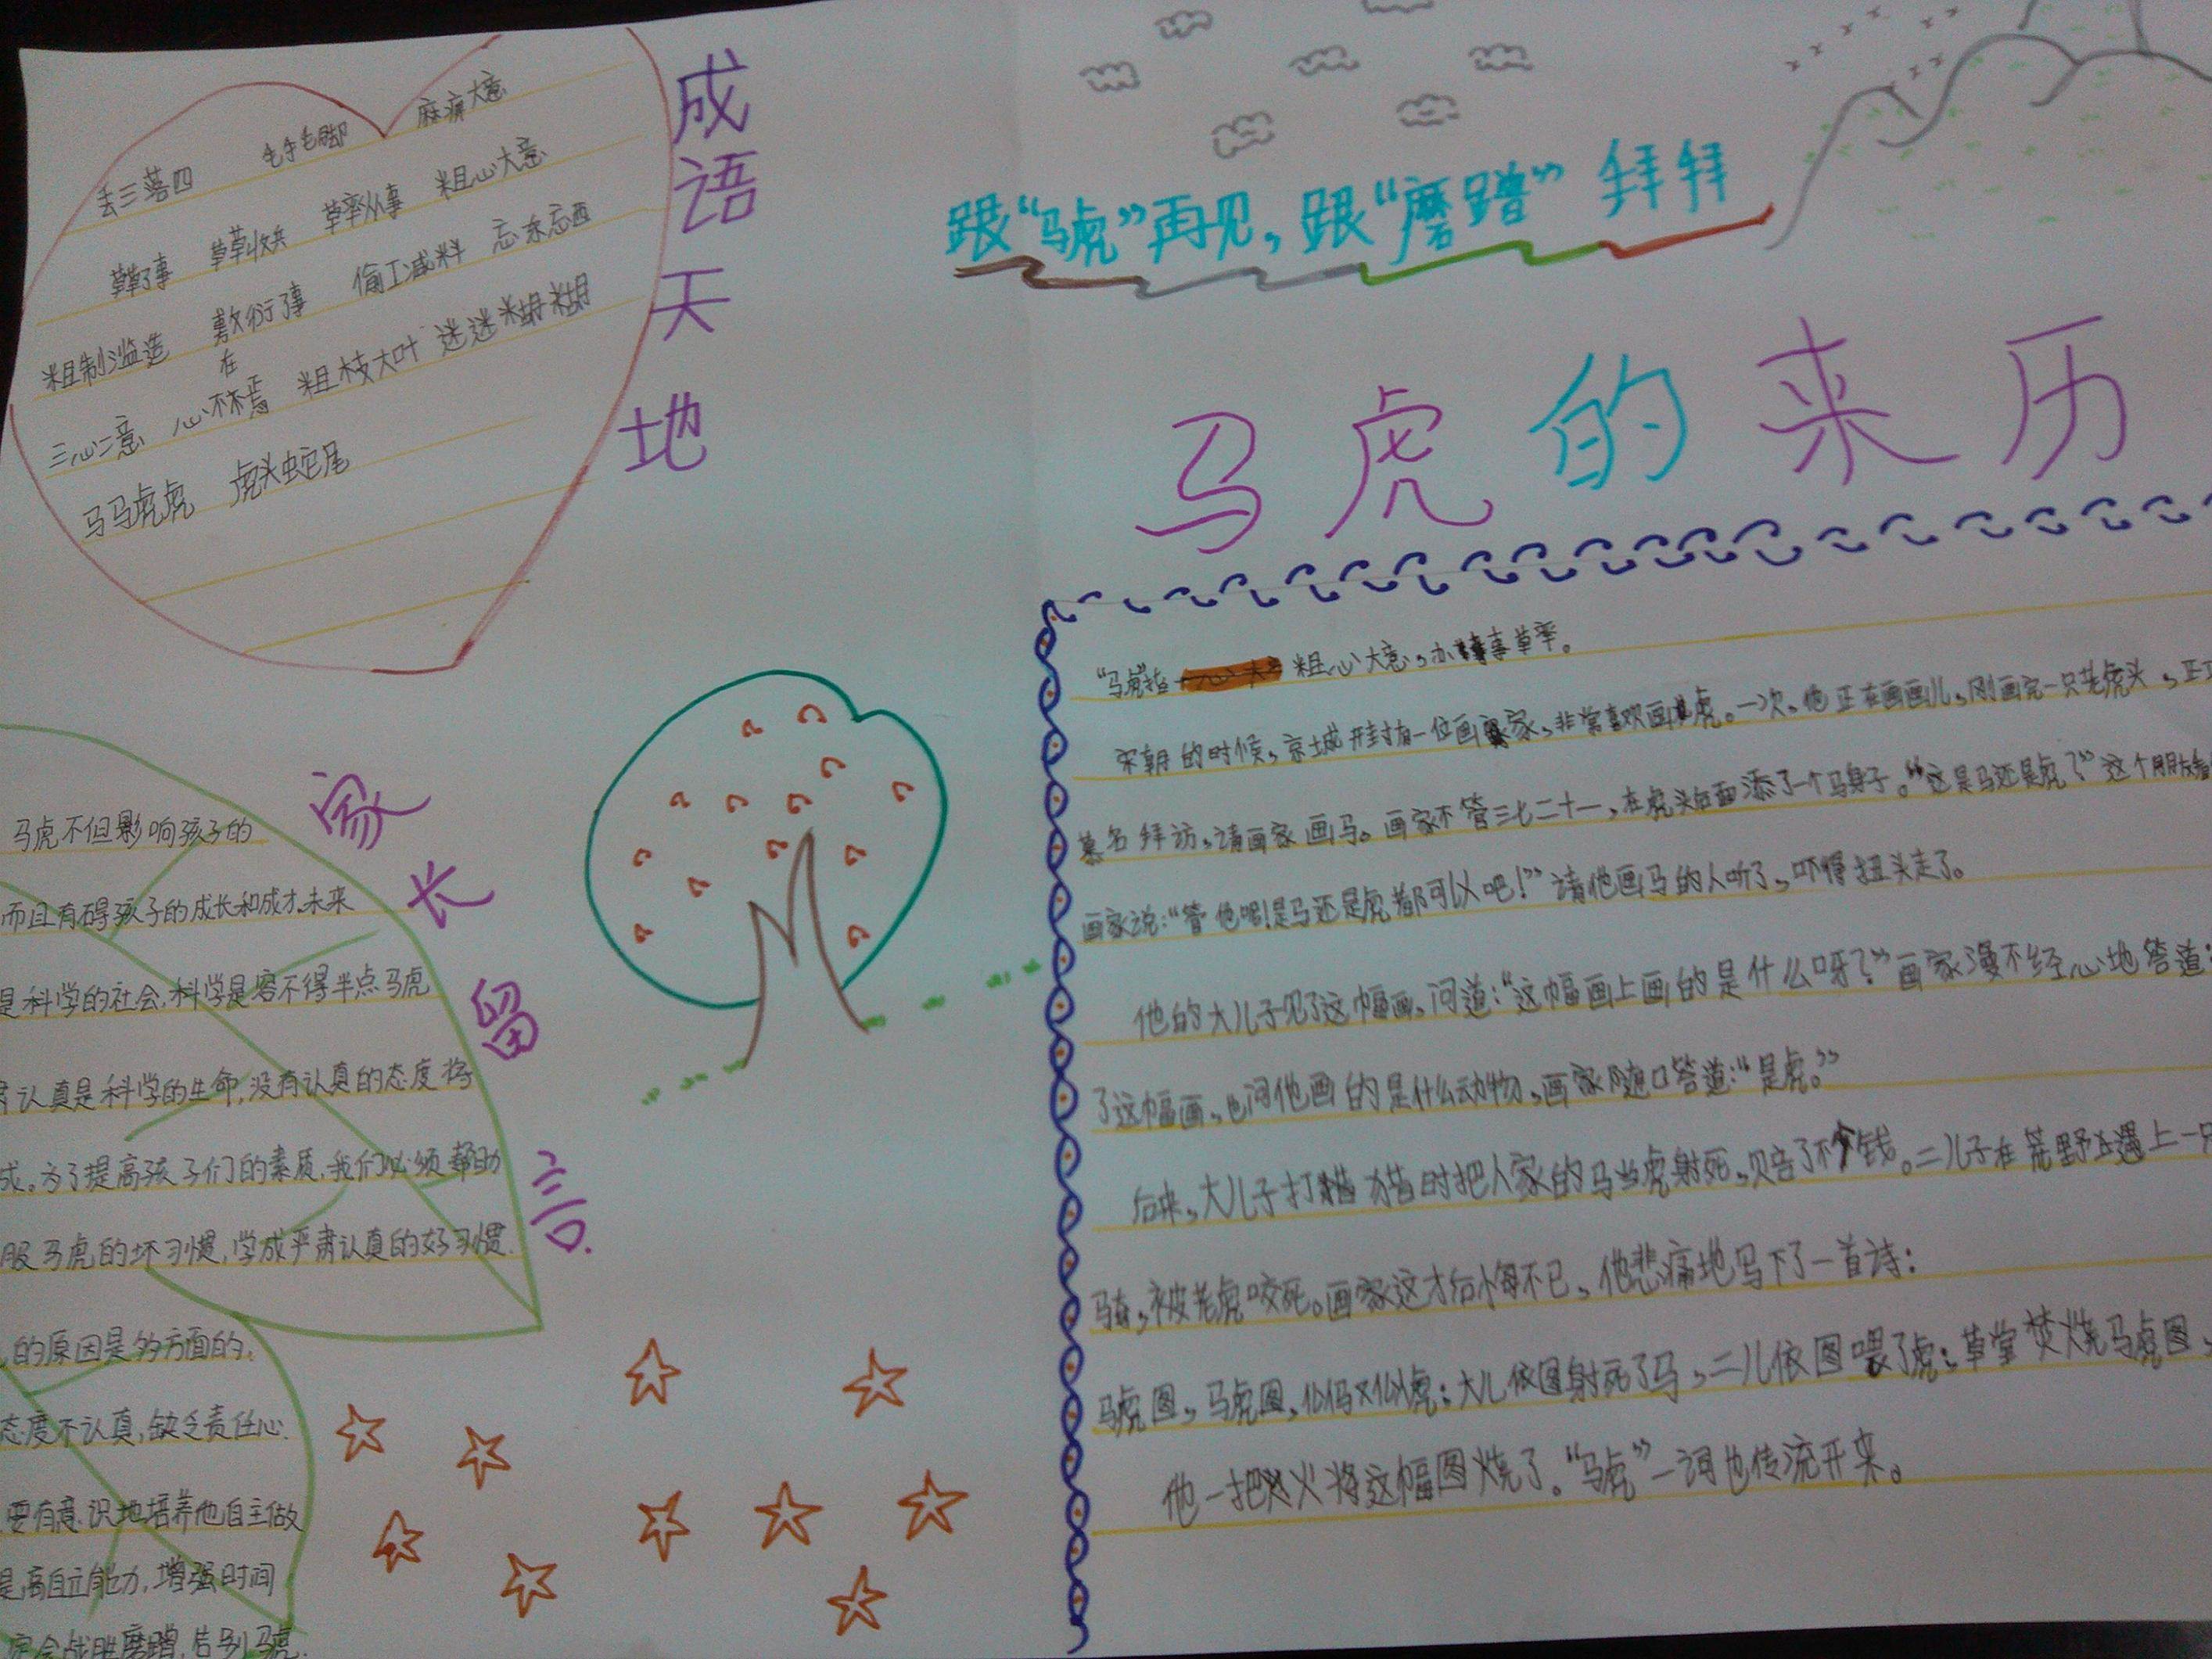 成语天地
丢三落四 毛手毛脚 麻痹大意
草草了事 草草收兵 草率从事 粗心大意
粗制滥造 敷衍了事 偷工减料 忘东忘西
三心二意 心不在焉 粗枝大叶 迷迷糊糊
马马虎虎 虎头蛇尾
跟“马虎”再见，跟“磨蹭”拜拜
马虎的来历
“马虎”指粗心大意，办事草率。
宋朝的时候，京城开封有一位画家，非常喜欢画虎。一次，他正在画画儿，刚画完一只老虎头，正
慕名拜访，请画家画马。画家不管三七二十一，在虎头后面添了一个马身子。“这是马还是虎？”这个朋友
画家说：“管他呢！是马还是虎都可以吧！”请他画马的人听了，吓得扭头走了。
他的大儿子见了这幅画，问道：“这幅画上画的是什么呀？”画家漫不经心地答道：
了这幅画，也问他画的是什么动物，画家随口答道：“是虎。”
后来，大儿子打猎时把人家的马当虎射死，赔了不少钱。二儿子在荒野上遇上一只
骑，被老虎咬死。画家这才后悔不已，他悲痛地写下了一首诗：
马虎图，马虎图，似马又似虎；大儿依图射死了马，二儿依图喂了虎；草堂焚烧马虎图，
他一把火将这幅图烧了。“马虎”一词也传流开来。
家长留言
马虎不但影响孩子的
而且有碍孩子的成长和成才，未来
是科学的社会，科学是容不得半点马虎
认真是科学的生命，没有认真的态度将
成。为了提高孩子们的素质，我们必须帮助
服马虎的坏习惯，学成严肃认真的好习惯.
的原因是多方面的.
态度不认真，缺乏责任心.
要有意识地培养他自主做
提高自立能力，增强时间
定会战胜磨蹭，告别马虎.